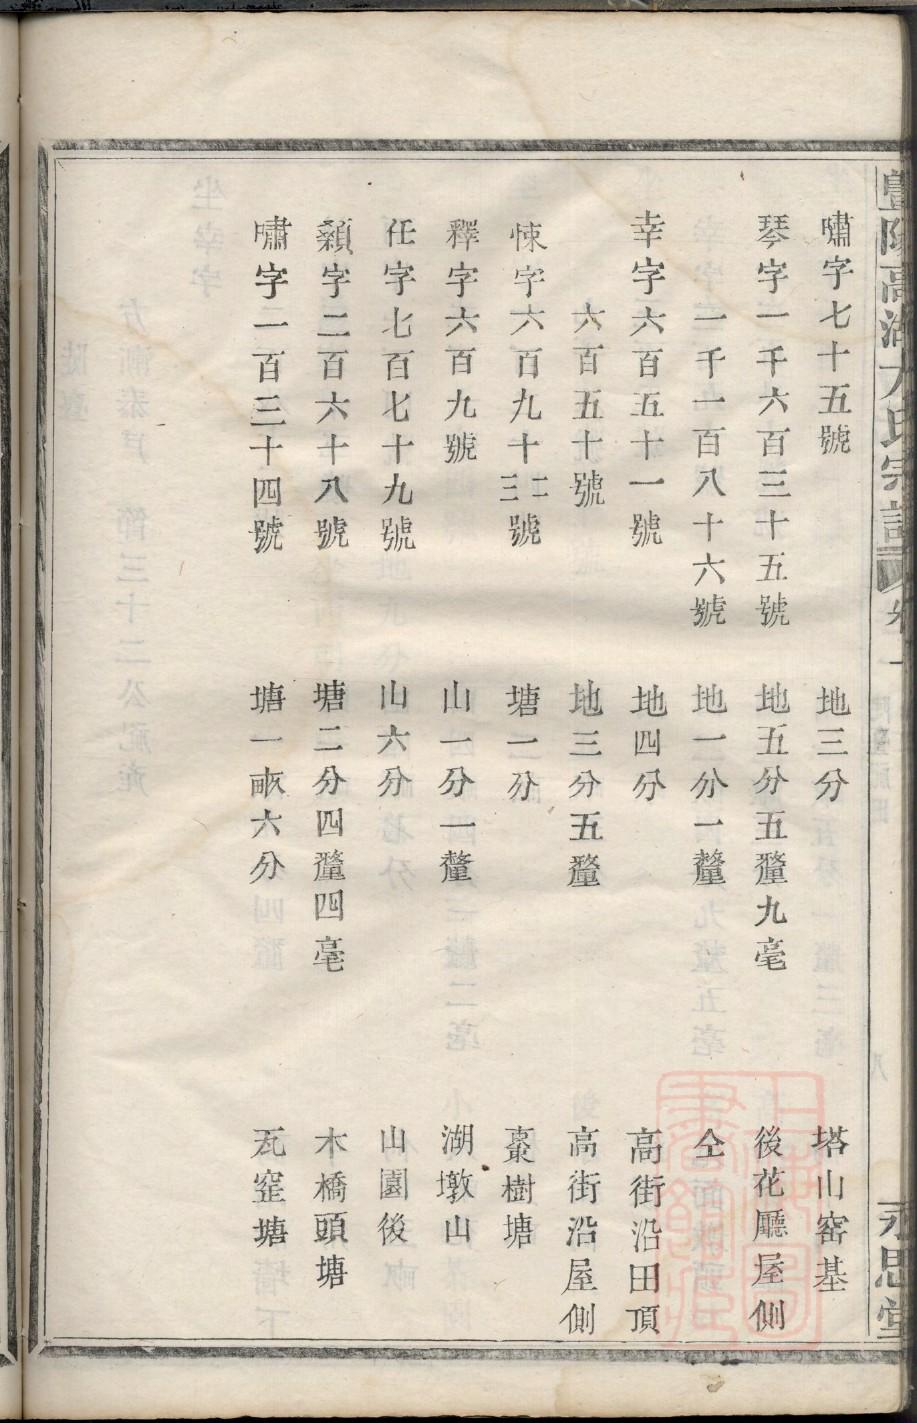 暨陽高湖方氏宗譜 卷一 永思堂
嘯字七十五號 地三分 塔山窑基
琴字一千六百三十五號 地五分五釐九毫 後花廳屋側
一千一百八十六號 地一分一釐 仝
幸字六百五十一號 地四分 高街沿田頂
六百五十號 地三分五釐 高街沿屋側
悚字六百九十二三號 塘一分 棗樹塘
釋字六百九號 山一分一釐 湖墩山
任字七百七十九號 山六分 山園後
顙字二百六十八號 塘二分四釐四毫 木橋頭塘
嘯字一百三十四號 塘一畒六分 瓦窐塘